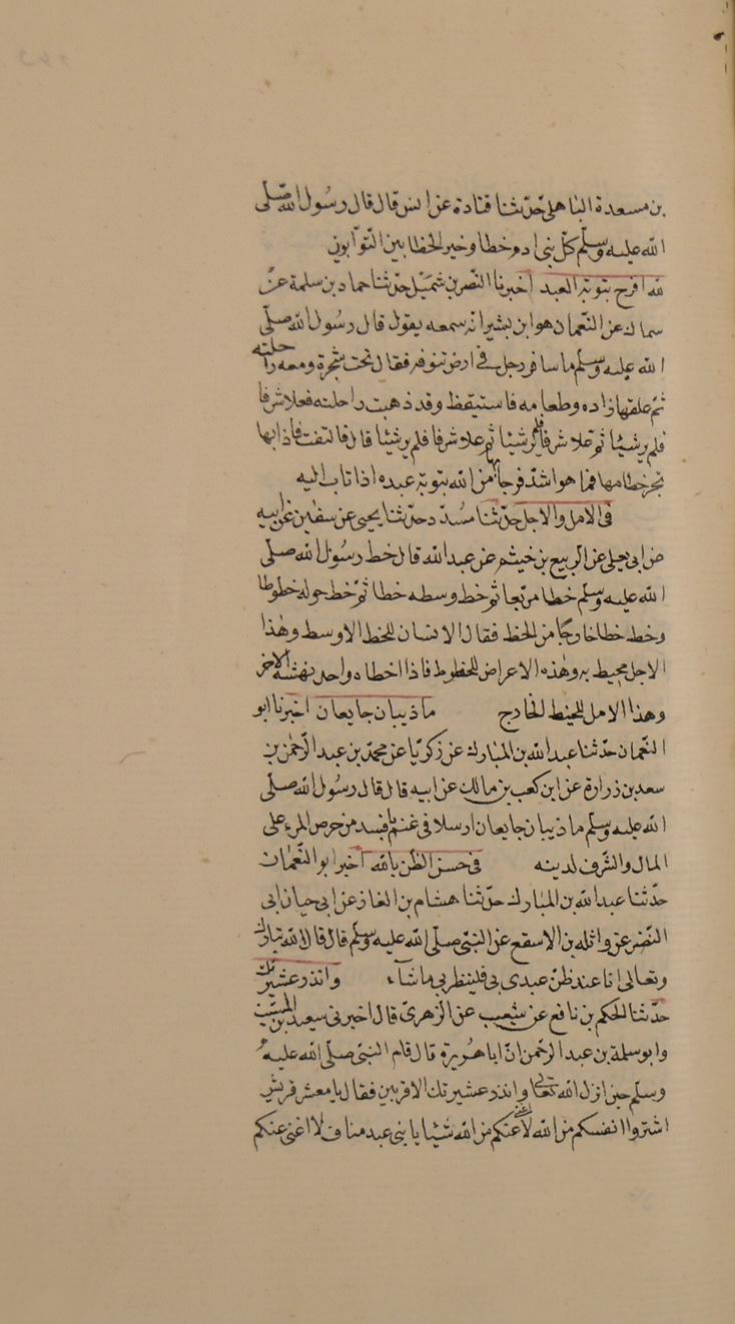 بن مسعدة الباهلى حدّثنا قتادة عن انس قال قال رسُول الله صلّى
الله عليه وسلّم كلّ بنى ادم خطا وخير الخطابين التوّابون
لله افرح بتوبة العبد اخبرنا النّضر بن شُمَيل حدّثنا حماد بن سلمة عن
سماك عن النّعمان هو ابن بشير انّه سمعه يقول قال رسول الله صلّى
الله عليه وسلّم ما سافر رجل فى ارض تنوفه فقال تحت شجرة ومعه راحلته
عليها زاده وطعامه فاستيقظ وقد ذهبت راحلته فعلا شرفا
فلم ير شيئا ثم علا شرفا فلم ير شيئا ثم علا شرفا فلم ير شيئا قال فالتفت فاذا بها
تجر خطامها فما هو اشدّ فرحا بها من الله بتوبة عبده اذا تاب اليه
فى الامل والاجل حدّثنا مسُدّد حدّثنا يحيى عن سفين عن ابيه
عن ابى يعلى عن الربيع بن خيثم عن عبد الله قال خط رسُول الله صلّى
الله عليه وسلّم خطا مربّعا ثم خط وسطه خطا ثم خط حوله خطوطا
وخط خطا خارجًا من الخط فقال الانسان للخط الاوسط وهذا
الاجل محيط به وهذه الاعراض للخطوط فاذا اخطاه واحد نهشه الاخر
وهذا الامل للخيط الخارج ما ذيبان جايعان اخبرنا ابو
النّعمان حدّثنا عبد الله بن المبارك عن زكريّا عن محمّد بن عبد الرّحمن بن
سعد بن زرارة عن ابن كعب بن مالك عن ابيه قال قال رسُول الله صلّى
الله عليه وسلّم ما ذيبان جايعان ارسلا فى غنم بافسد من حرص المرء على
المال والشّرف لدينه فى حسن الظّن بالله اخبرا بو النّعمان
حدّثنا عبد الله بن المبارك حدّثنا هشام بن الغاز عن ابى حيان ابى
النّضر عن واثله بن الاسقع عن النبّى صلّى الله عليه وسلّم قال قال الله تبارك
وتعالى انا عند ظنّ عبدى بى فلينظر بى ما شآء وانذر عشيرتك
حدّثنا الحكم بن نافع عن شعيب عن الزهرىّ قال اخبرنى سعيد بن المسيّب
وابو سلمة بن عبد الرّحمن انّ ابا هُريرة قال قام النبّى صلّى الله عليه
وسلّم حين انزل الله تعالى وانذر عشيرتك الاقربين فقال يا معشر قريش
اشتروا انفسكم من الله لا اغنى عنكم من الله شيئا يا بنى عبد مناف لا اغنى عنكم